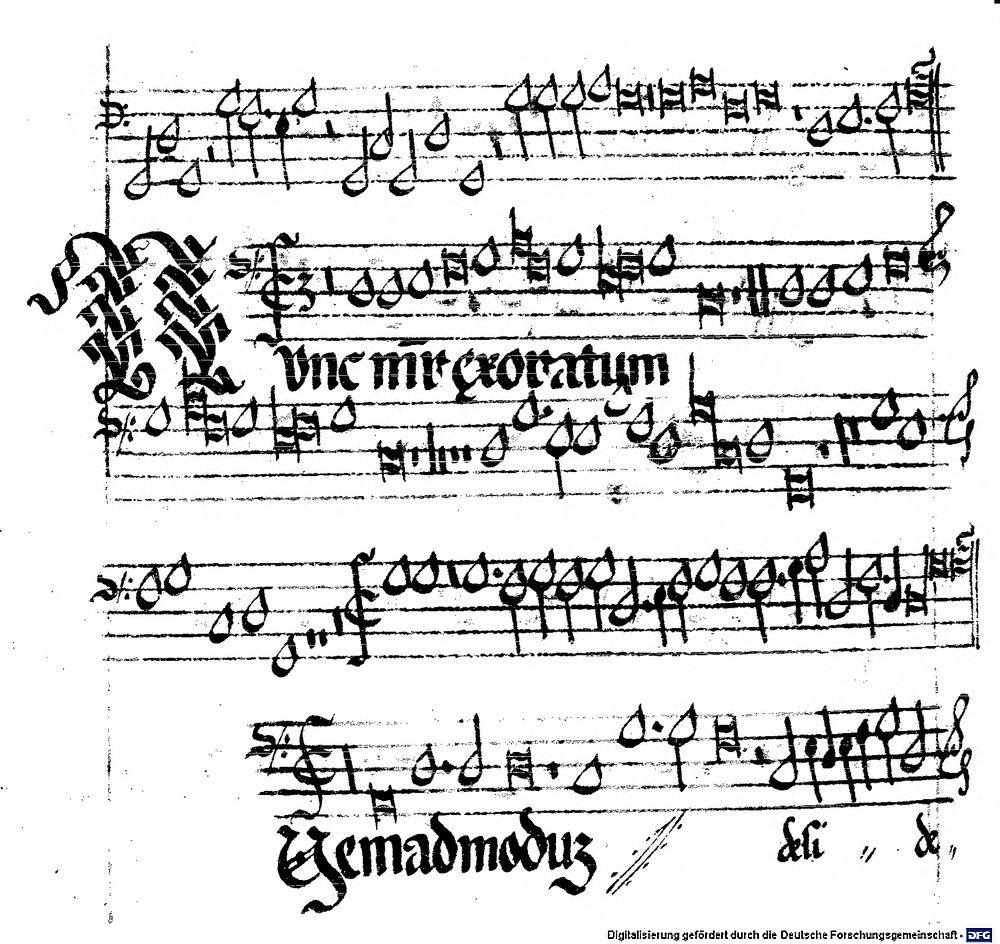 vnc mr̄ exoratum
Uemadmoduz
deli „ de „
Digitalisierung gefördert durch die Deutsche Forschungsgemeinschaft - DFG